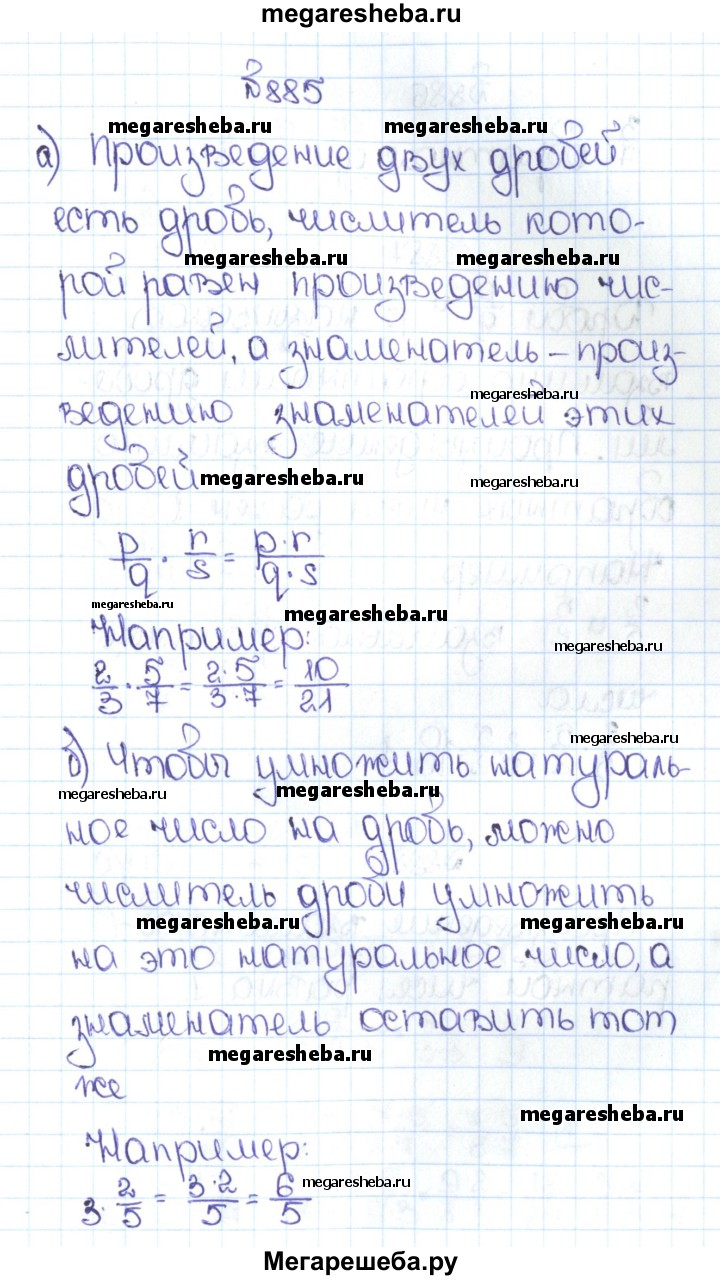 megaresheba.ru
№885
megaresheba.ru megaresheba.ru
а) Произведение двух дробей
есть дробь, числитель кото-
megaresheba.ru megaresheba.ru
рой равен произведению чис-
лителей, а знаменатель – произ-
megaresheba.ru
ведению знаменателей этих
дробей megaresheba.ru megaresheba.ru
p/q · r/s = p·r/q·s
megaresheba.ru megaresheba.ru
Например: megaresheba.ru
2/3 · 5/7 = 2·5/3·7 = 10/21
megaresheba.ru
б) Чтобы умножить натураль-
megaresheba.ru megaresheba.ru
ное число на дробь, можно
числитель дроби умножить
megaresheba.ru megaresheba.ru
на это натуральное число, а
знаменатель оставить тот
megaresheba.ru
же
megaresheba.ru
Например:
megaresheba.ru
3 · 2/5 = 3·2/5 = 6/5
Мегарешеба.ру